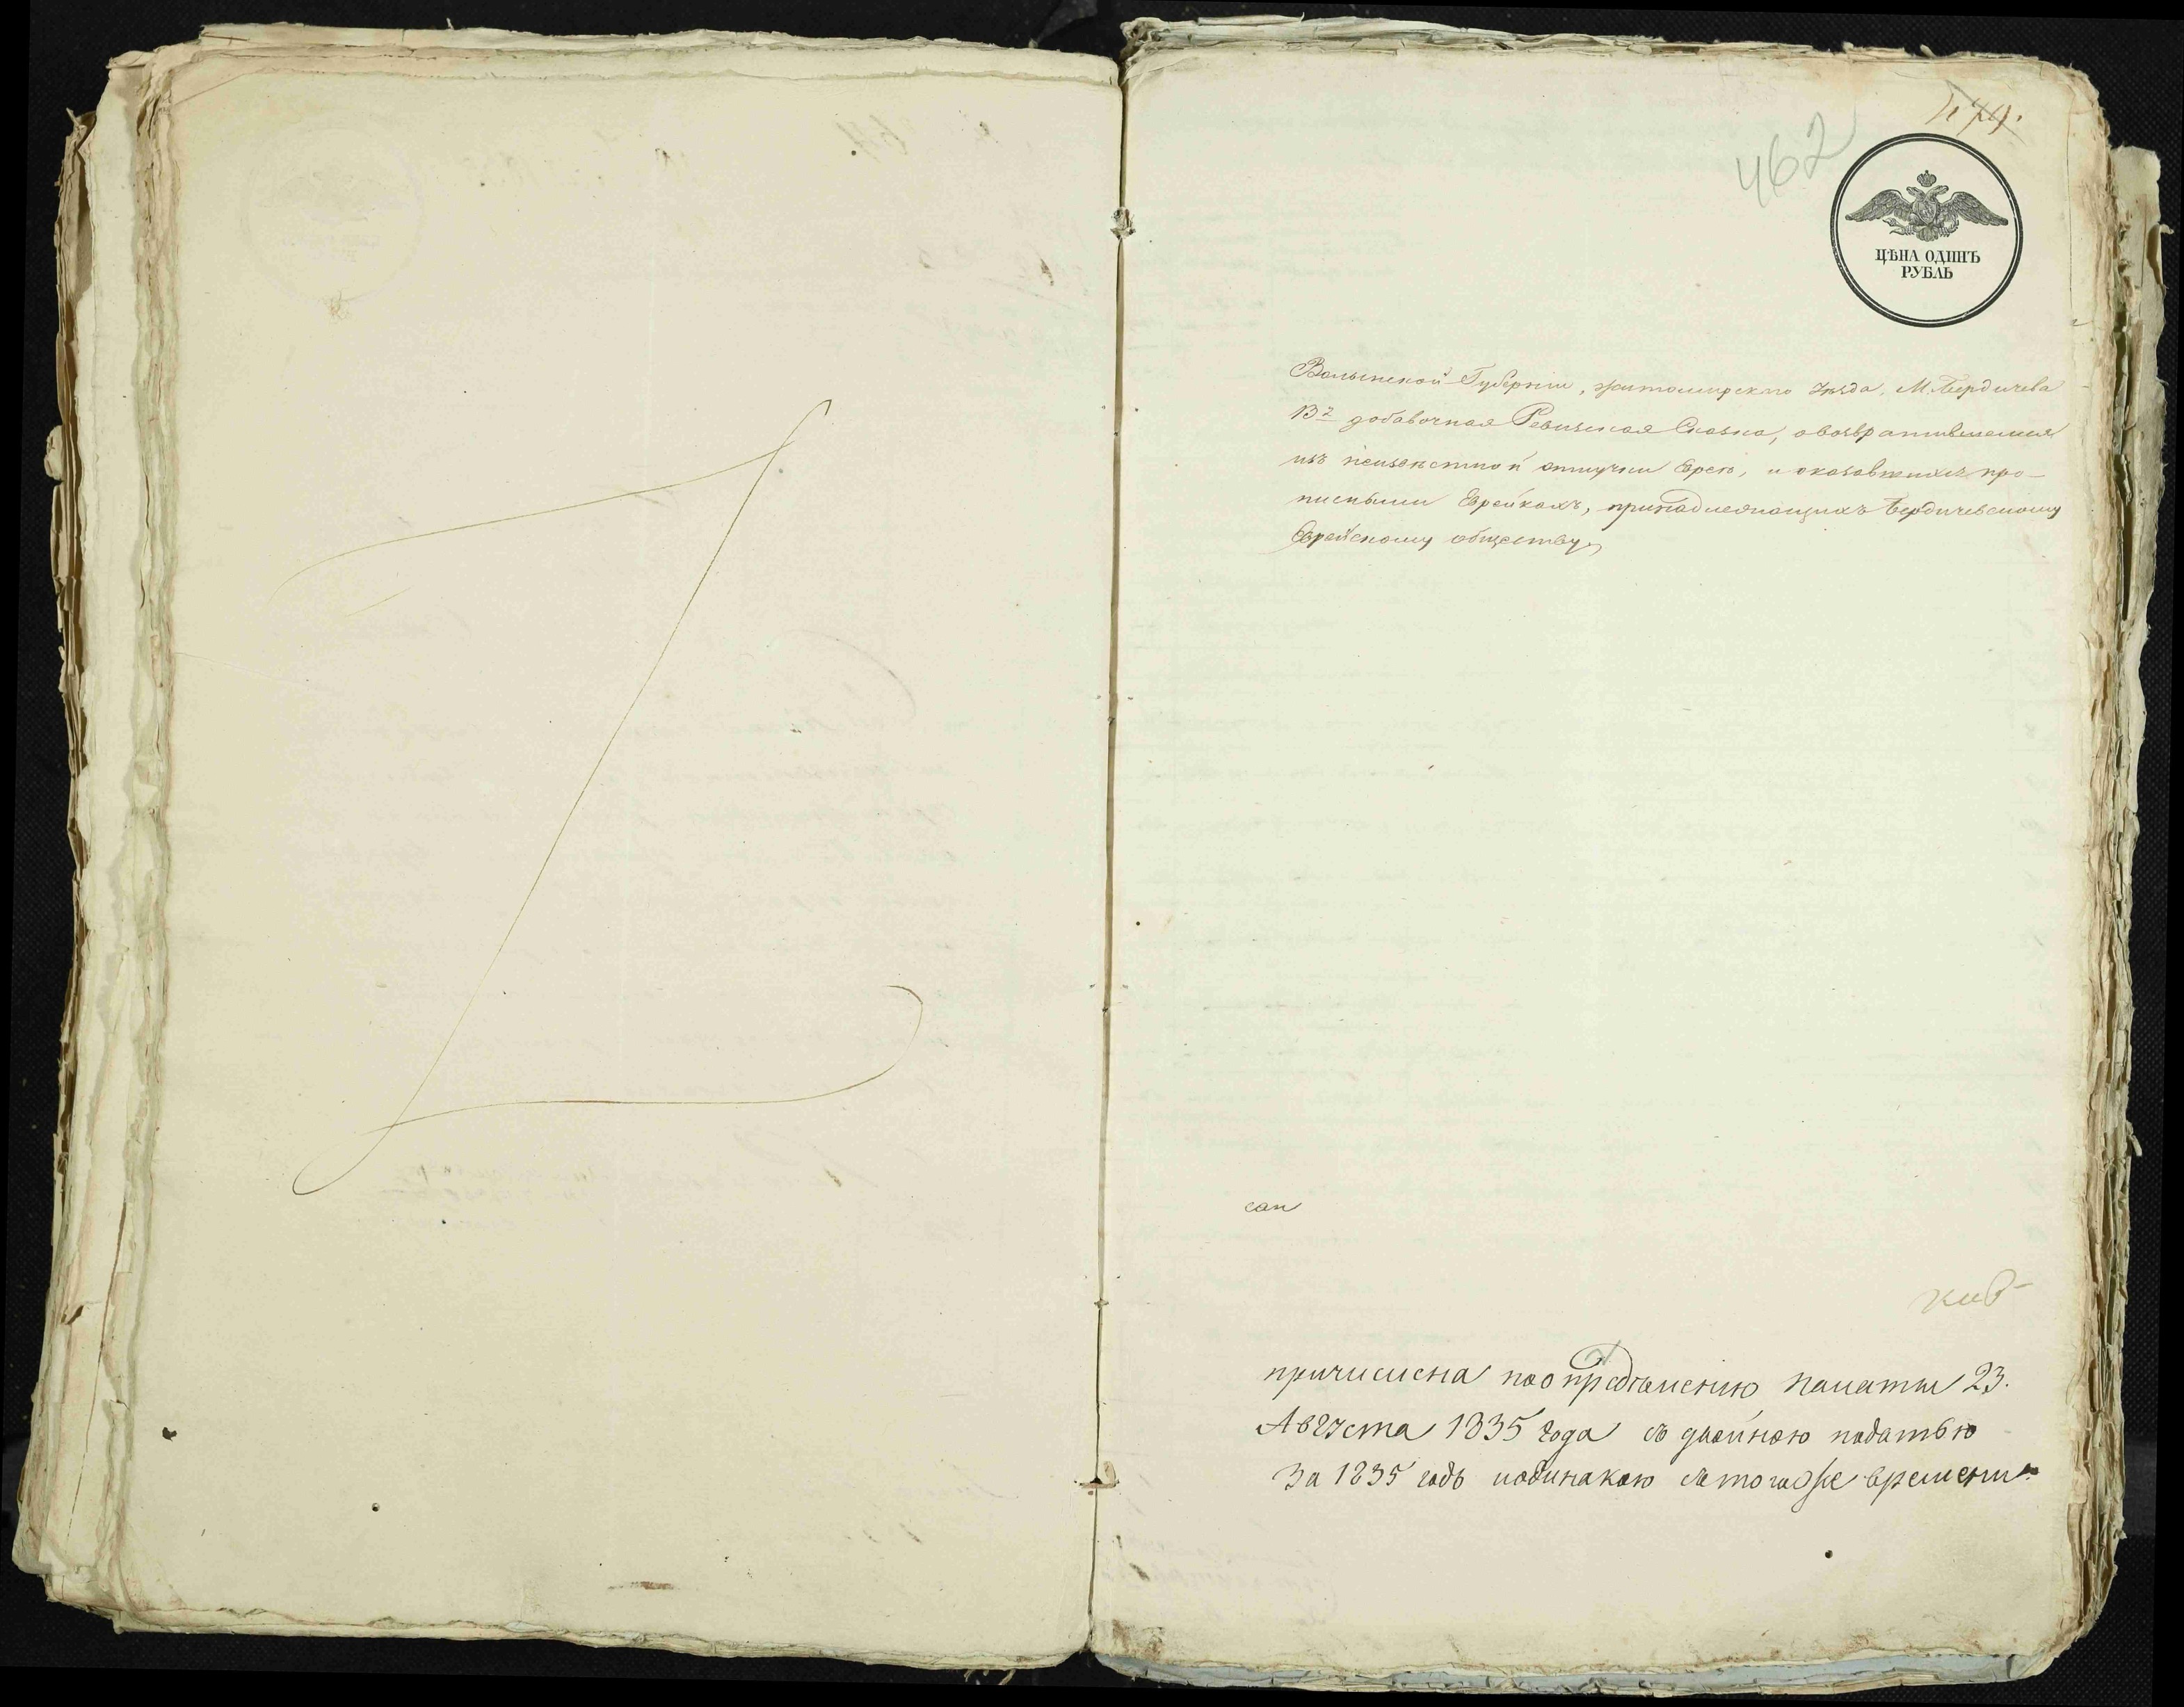 474.
462
ЦѢНА ОДИНЪ
РУБЛЬ
Волынской Губернии, житомирскаго уѣзда, М. Бердичева
13я добавочная Ревизская Сказка, овозвратившемся
изъ неизвѣстной отлучки Еврею, и оказавшихся про-
писными Еврейкахъ, принадлежащихъ Бердичевскому
Еврейскому обществу,
сап
причислена по опредѣлению палаты 23.
Августа 1835 года съ двойною податью
За 1835 годъ иодинакою стогоже времени.